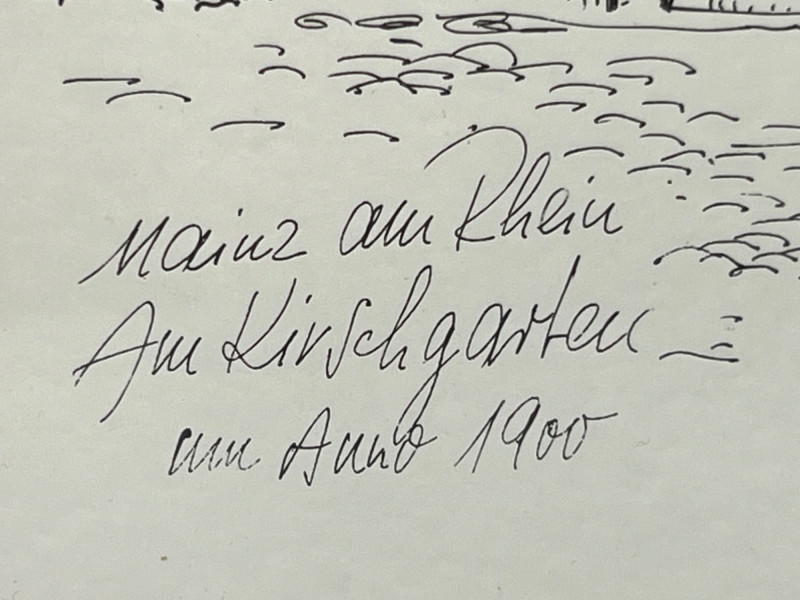 Mainz am Rhein
Am Kirschgarten
um Anno 1900